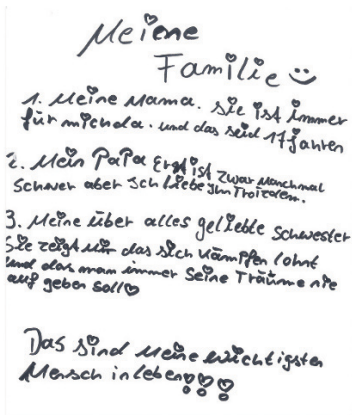 Meine
Familie :)
1. Meine Mama. Sie ist immer
für mich da. und das seid 17 Jahren
2. Mein PaPa Er ist zwar Manchmal
Schwer aber Ich Liebe Ihn Trotzdem.
3. Meine über alles geliebte Schwester
Sie zeigt mir das sich kämpfen lohnt
und das man immer Seine Träume nie
auf geben soll
Das sind Meine wichtigsten
Mensch in leben!!!